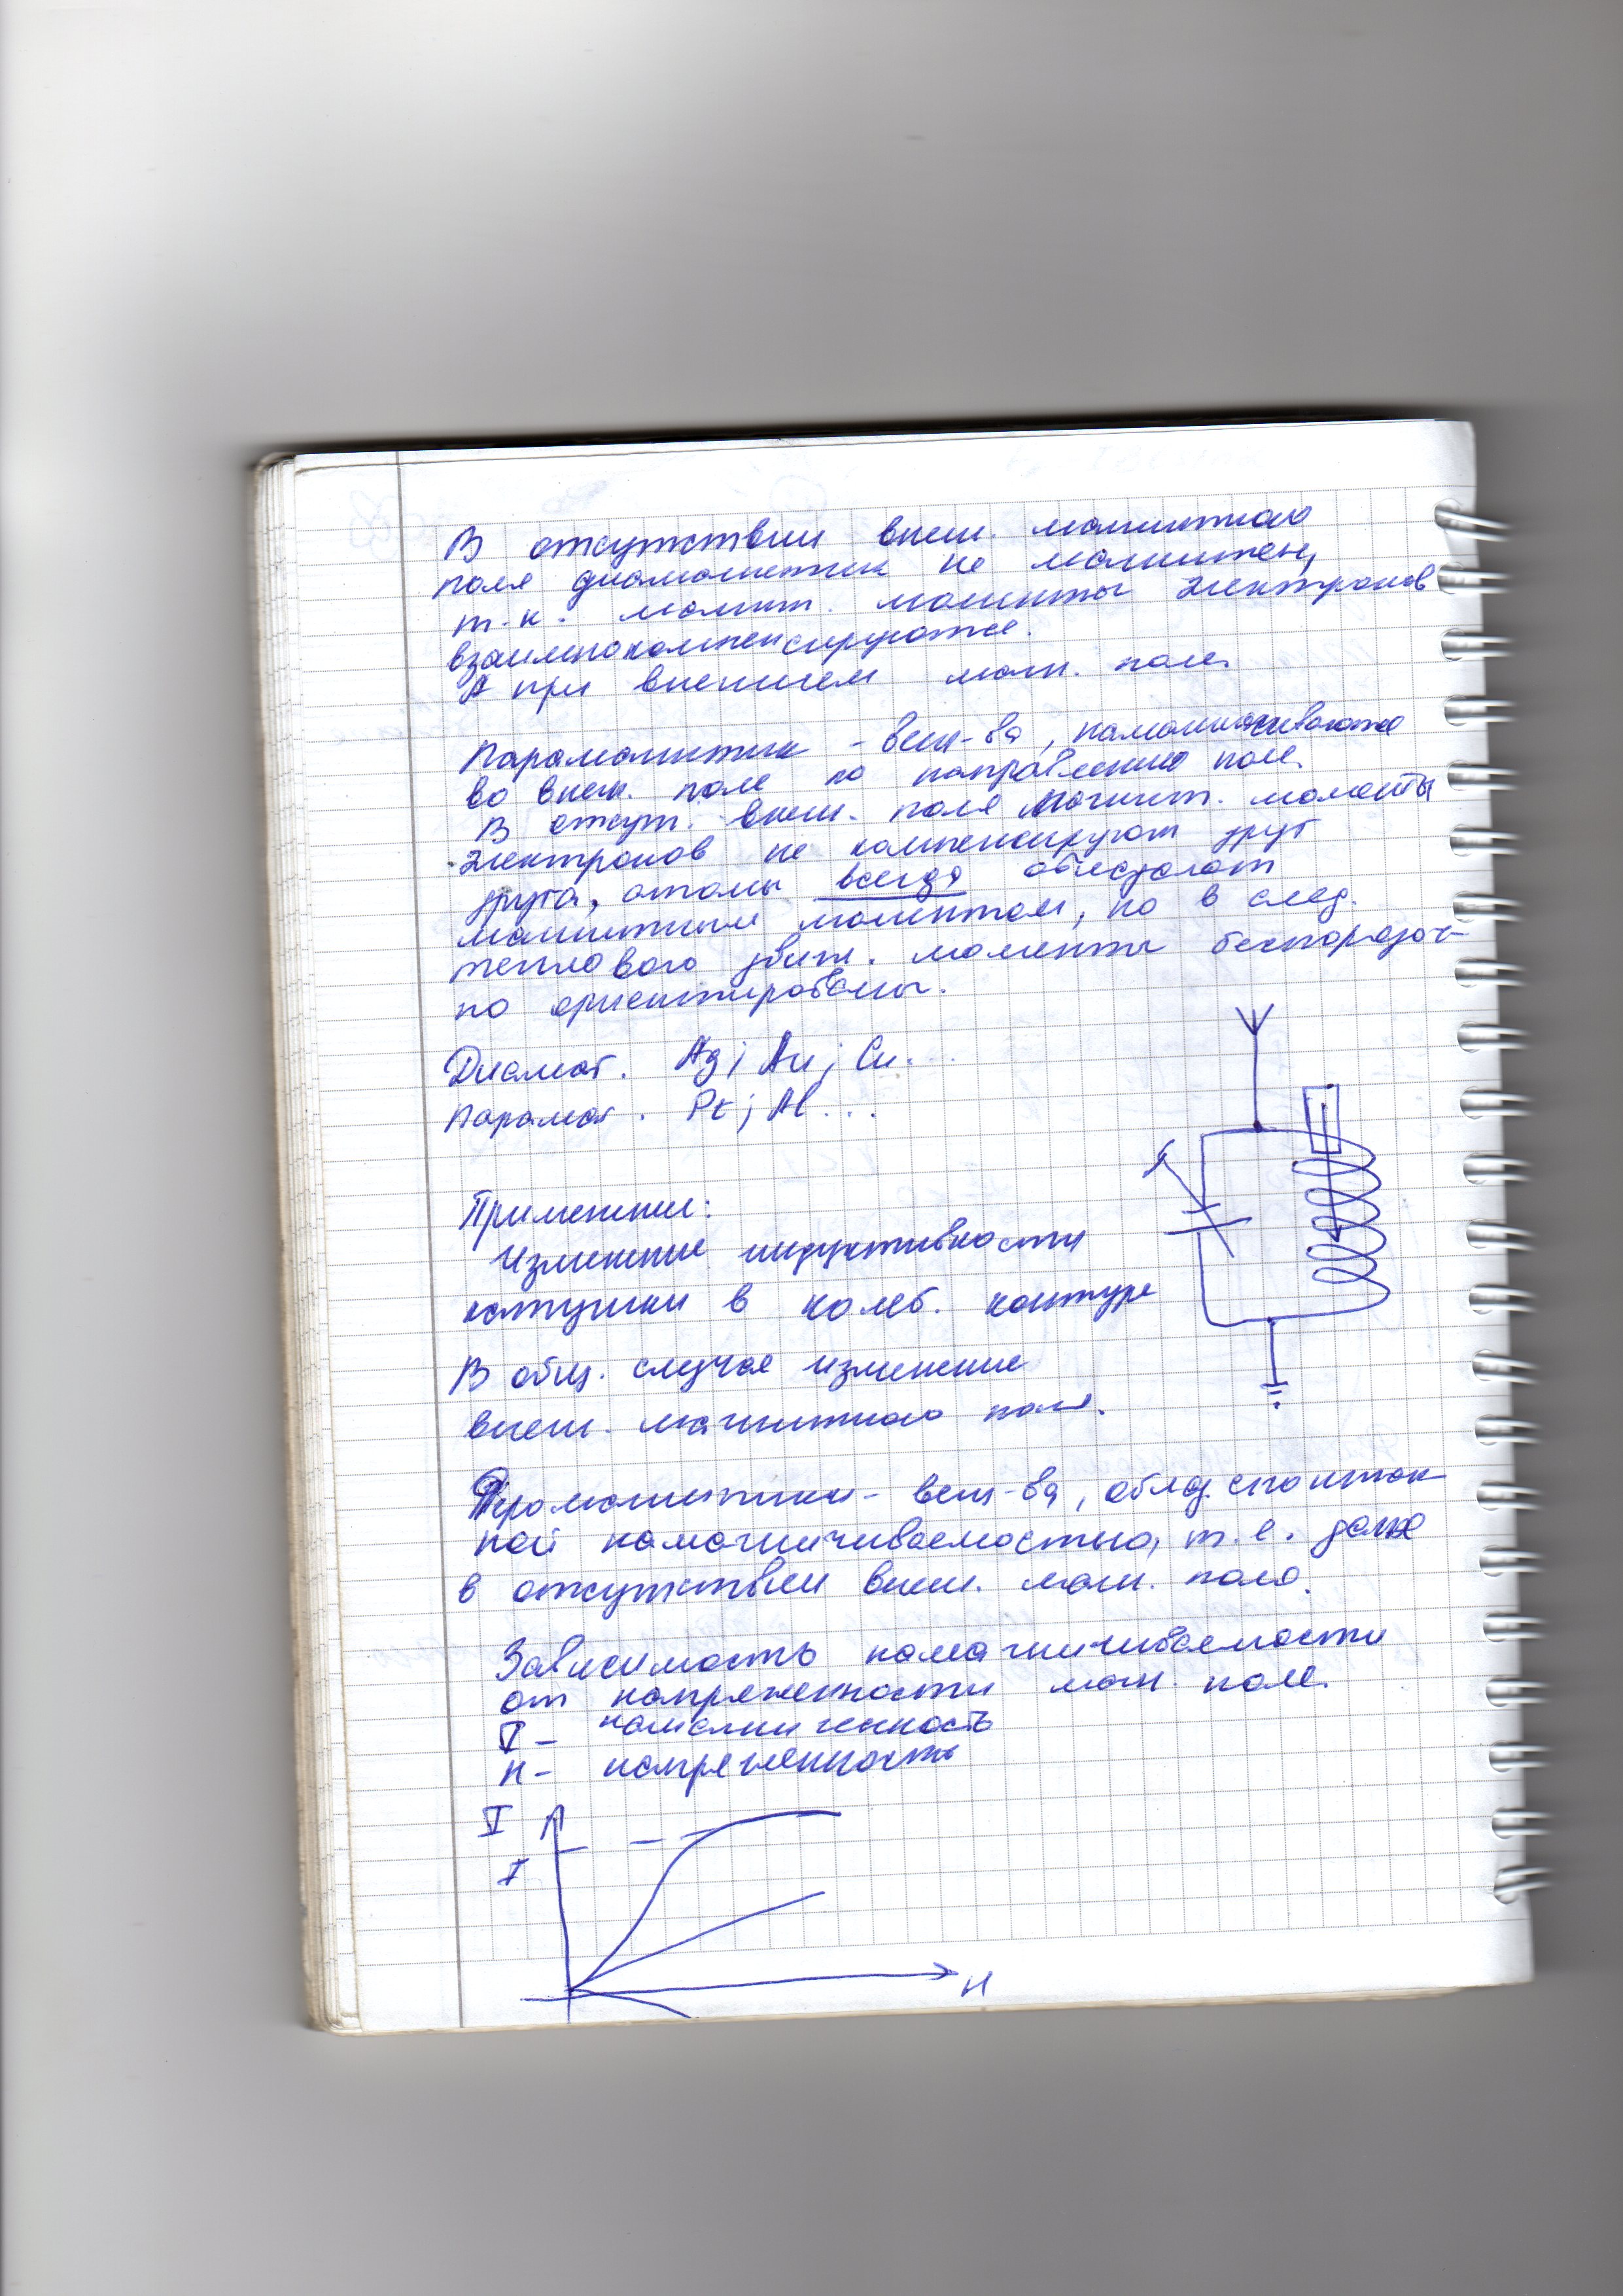 В отсутствии внеш. магнитного
поля диамагнетик не магнитен,
т.к. магнит. моменты электронов
взаимнокомпенсируются.
А при внешнем магн. поле.
Парамагнетики - вещ-ва, намагничивающиеся
во внеш. поле по направлению поле.
В отсут. внеш. поля магнит. моменты
электронов не компенсируют друг
друга, атомы всегда обладают
магнитным моментом, но в след.
теплового движ. моменты беспорядоч-
но ориентированы.
Диамаг. Ag; Au; Cu...
Парамаг. Pt; Al...
Применение:
Изменение индуктивности
катушки в колеб. контуре
В общ. случае изменение
внеш. магнитного поля.
Ферромагнетики - вещ-ва, облад. спонтан-
ной намагничиваемостью, т.е. даже
в отсутствии внеш. магн. поля.
Зависимость намагничиваемости
от напряженности магн. поле.
I - намагниченность
H - напряженность
I
I
H